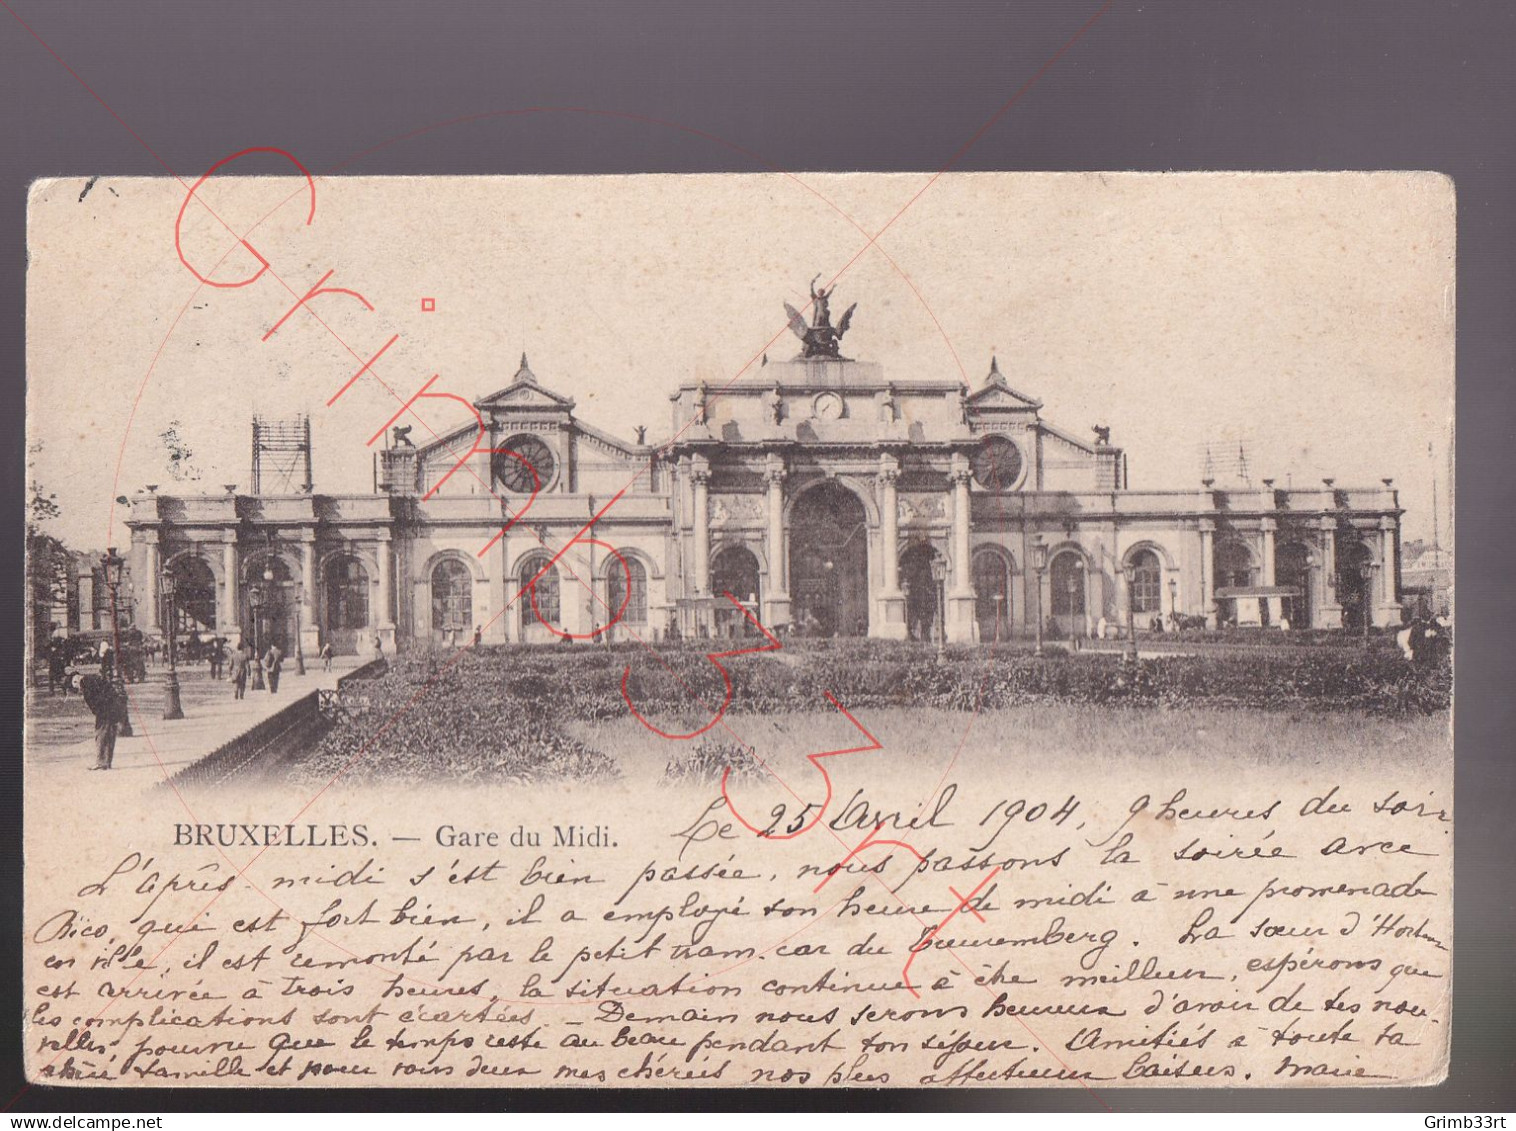 BRUXELLES. — Gare du Midi.
Le 25 Avril 1904, 9 heures du soir.
L'après-midi s'est bien passée, nous passons la soirée avec
Bico, qui est fort bien, il a employé son heure de midi à une promenade
en ville, il est remonté par le petit tram-car du Luxemberg. La sœur d'Hortense
est arrivée à trois heures, la situation continue à être meilleure, espérons que
les complications sont écartées. — Demain nous serons heureux d'avoir de tes nou-
velles pourvu que le temps reste au beau pendant ton séjour. Amitiés à toute ta
chère famille et pour vous deux mes chéris nos plus affectueux baisers. Marie
Grimb33rt
Grimb33rt